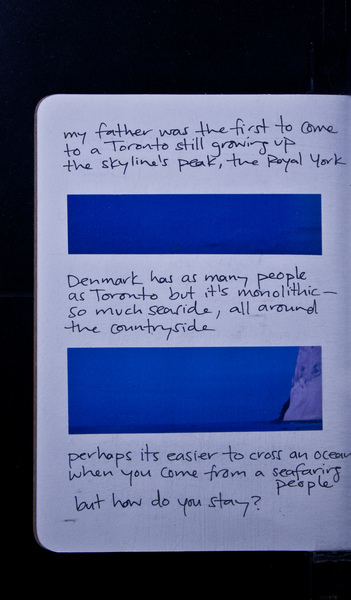 my father was the first to come
to a Toronto still growing up
the skyline's peak, the Royal York
Denmark has as many people
as Toronto but it's monolithic—
so much seaside, all around
the countryside
perhaps its easier to cross an ocean
when you come from a seafaring
people
but how do you stay?